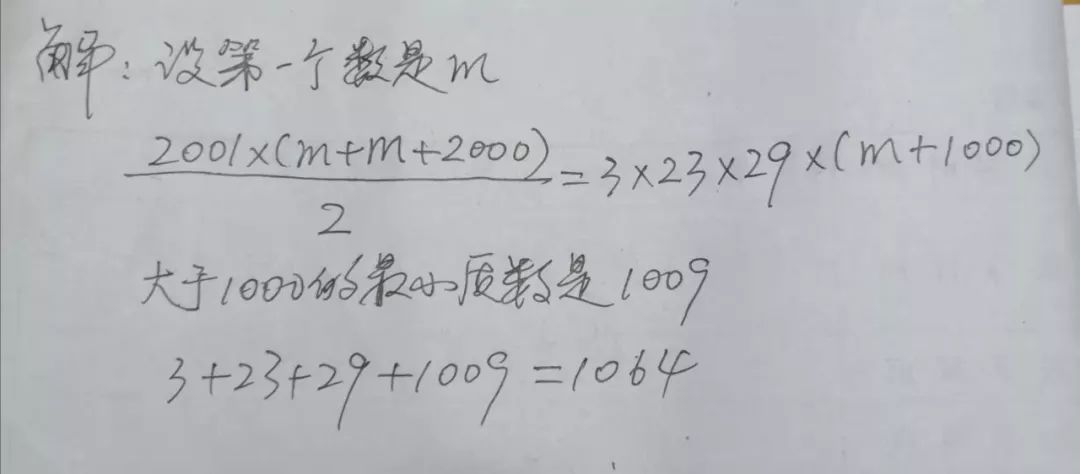 解：设第一个数是m
2001×(m+m+2000)/2=3×23×29×(m+1000)
大于1000的最小质数是1009
3+23+29+1009=1064